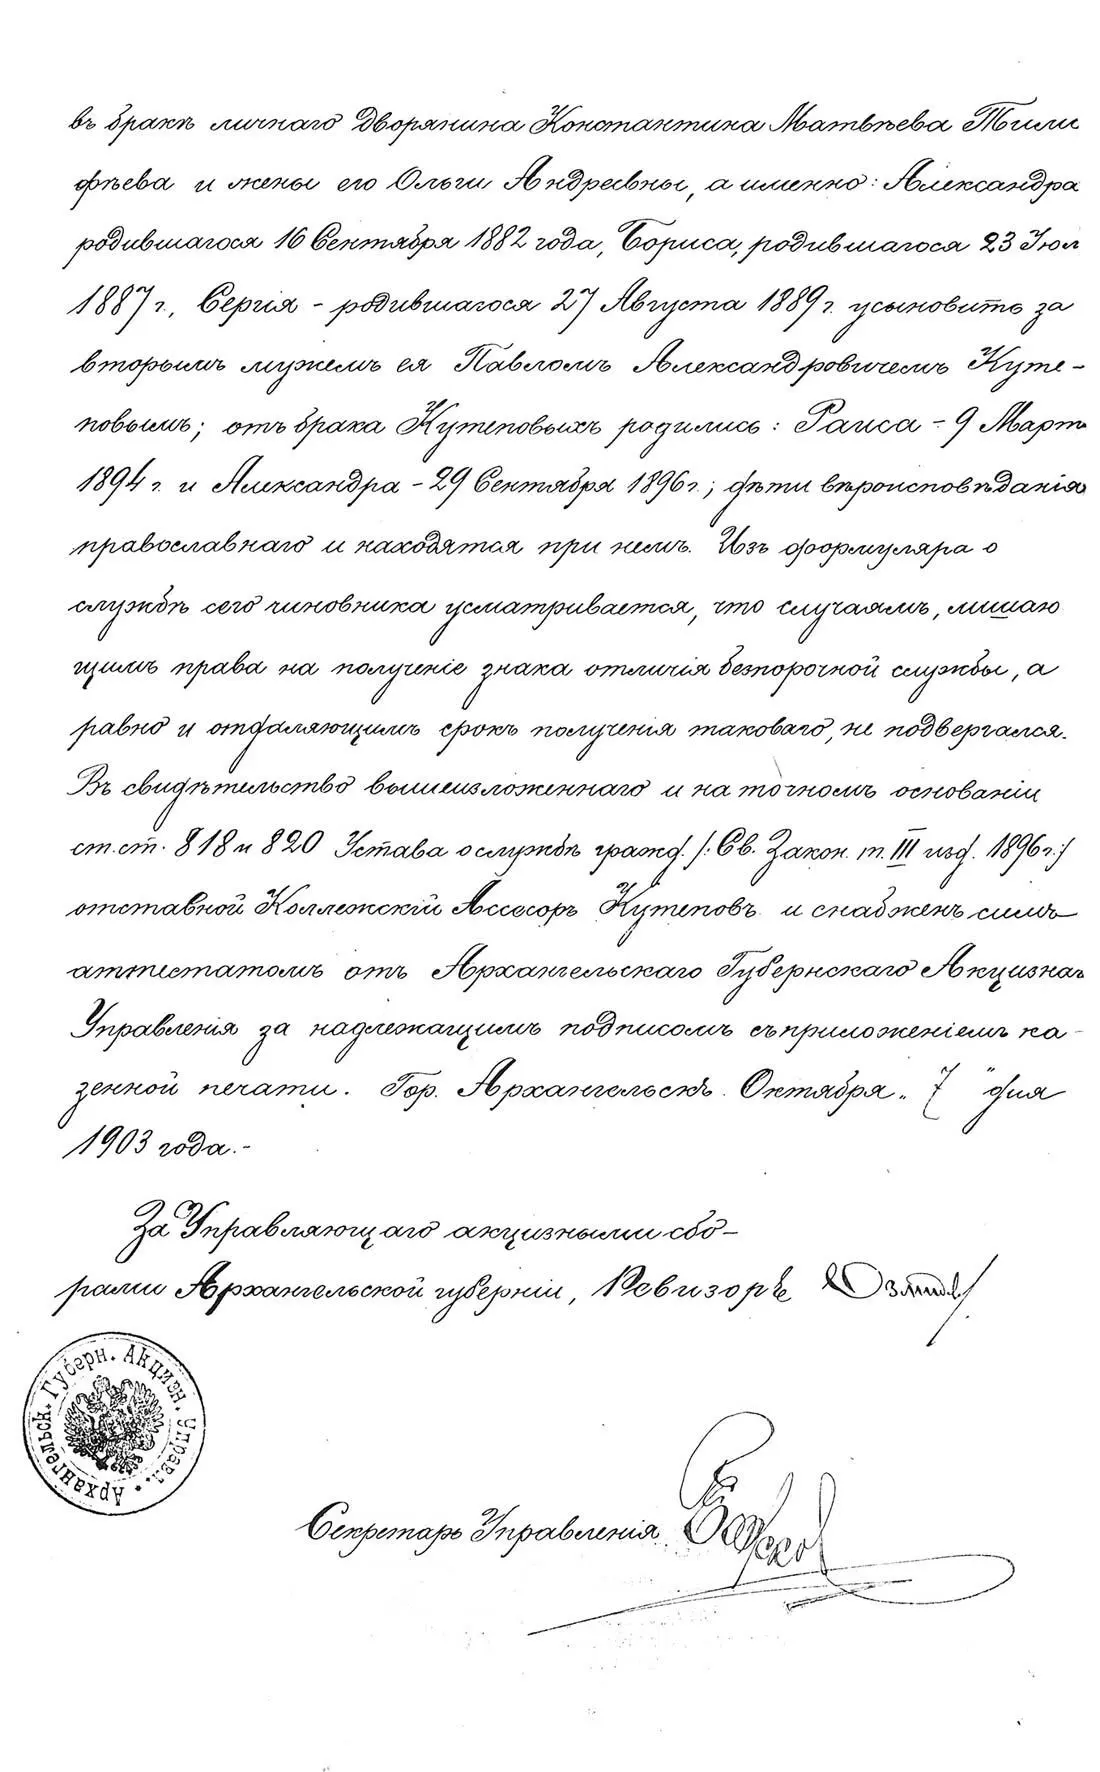 въ бракѣ личнаго Дворянина Константина Матвѣева Тими
фѣева и жены его Ольги Андреевны, а именно: Александра
родившагося 16 Сентября 1882 года, Бориса, родившагося 23 Іюл
1887 г., Сергія - родившагося 27 Августа 1889 г. усыновить за
вторымъ мужемъ ея Павломъ Александровичемъ Куте-
повымъ; отъ брака Кутеповыхъ родились: Раиса - 9 Март
1894 г. и Александра - 29 Сентября 1896 г.; дѣти вѣроисповѣданія
православнаго и находятся при немъ. Изъ формуляра о
службѣ сего чиновника усматривается, что случаямъ, лишаю
щимъ права на полученіе знака отличія безпорочной службы, а
равно и отдаляющимъ срокъ полученія таковаго, не подвергался.
Въ свидѣтельство вышеизложеннаго и на точномъ основаніи
ст. ст. 818 и 820 Устава о службѣ гражд. /: Св. Закон. т. III изд. 1896 г :/
отставной Коллежскій Ассесоръ Кутеповъ и снабженъ симъ
аттестатомъ отъ Архангельскаго Губернскаго Акцизнаг
Управленія за надлежащимъ подписомъ съ приложеніемъ ка-
зенной печати. Гор. Архангельскъ. Октября „ 7 " дня
1903 года.-
За Управляющаго акцизными сбо-
рами Архангельской губерніи, Ревизоръ
Архангельск. Губерн. Акцизн. Управл.
Секретарь Управленія